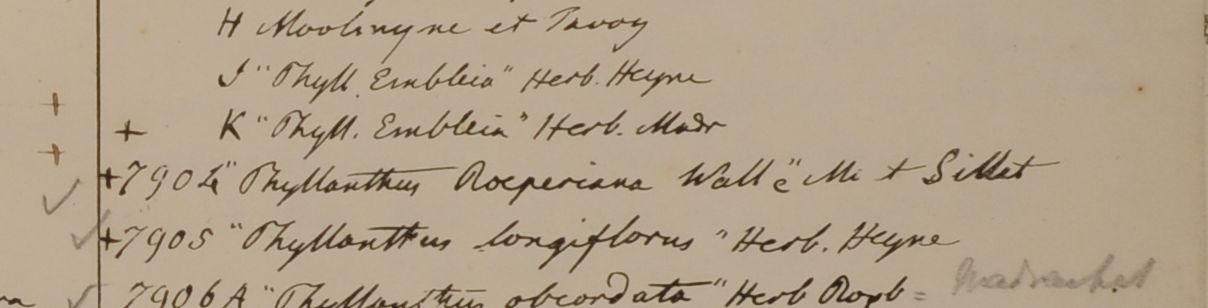 H Moolmyne et Tavoy
J "Phyll. Emblica" Herb. Heyne
+ K "Phyll. Emblica" Herb. Madr
+7904 "Phyllanthus Roeperiana Wall" e Mt Sillet
+7905 "Phyllanthus longiflorus" Herb. Heyne
7906 A "Phyllanthus obcordata" Herb Roxb =